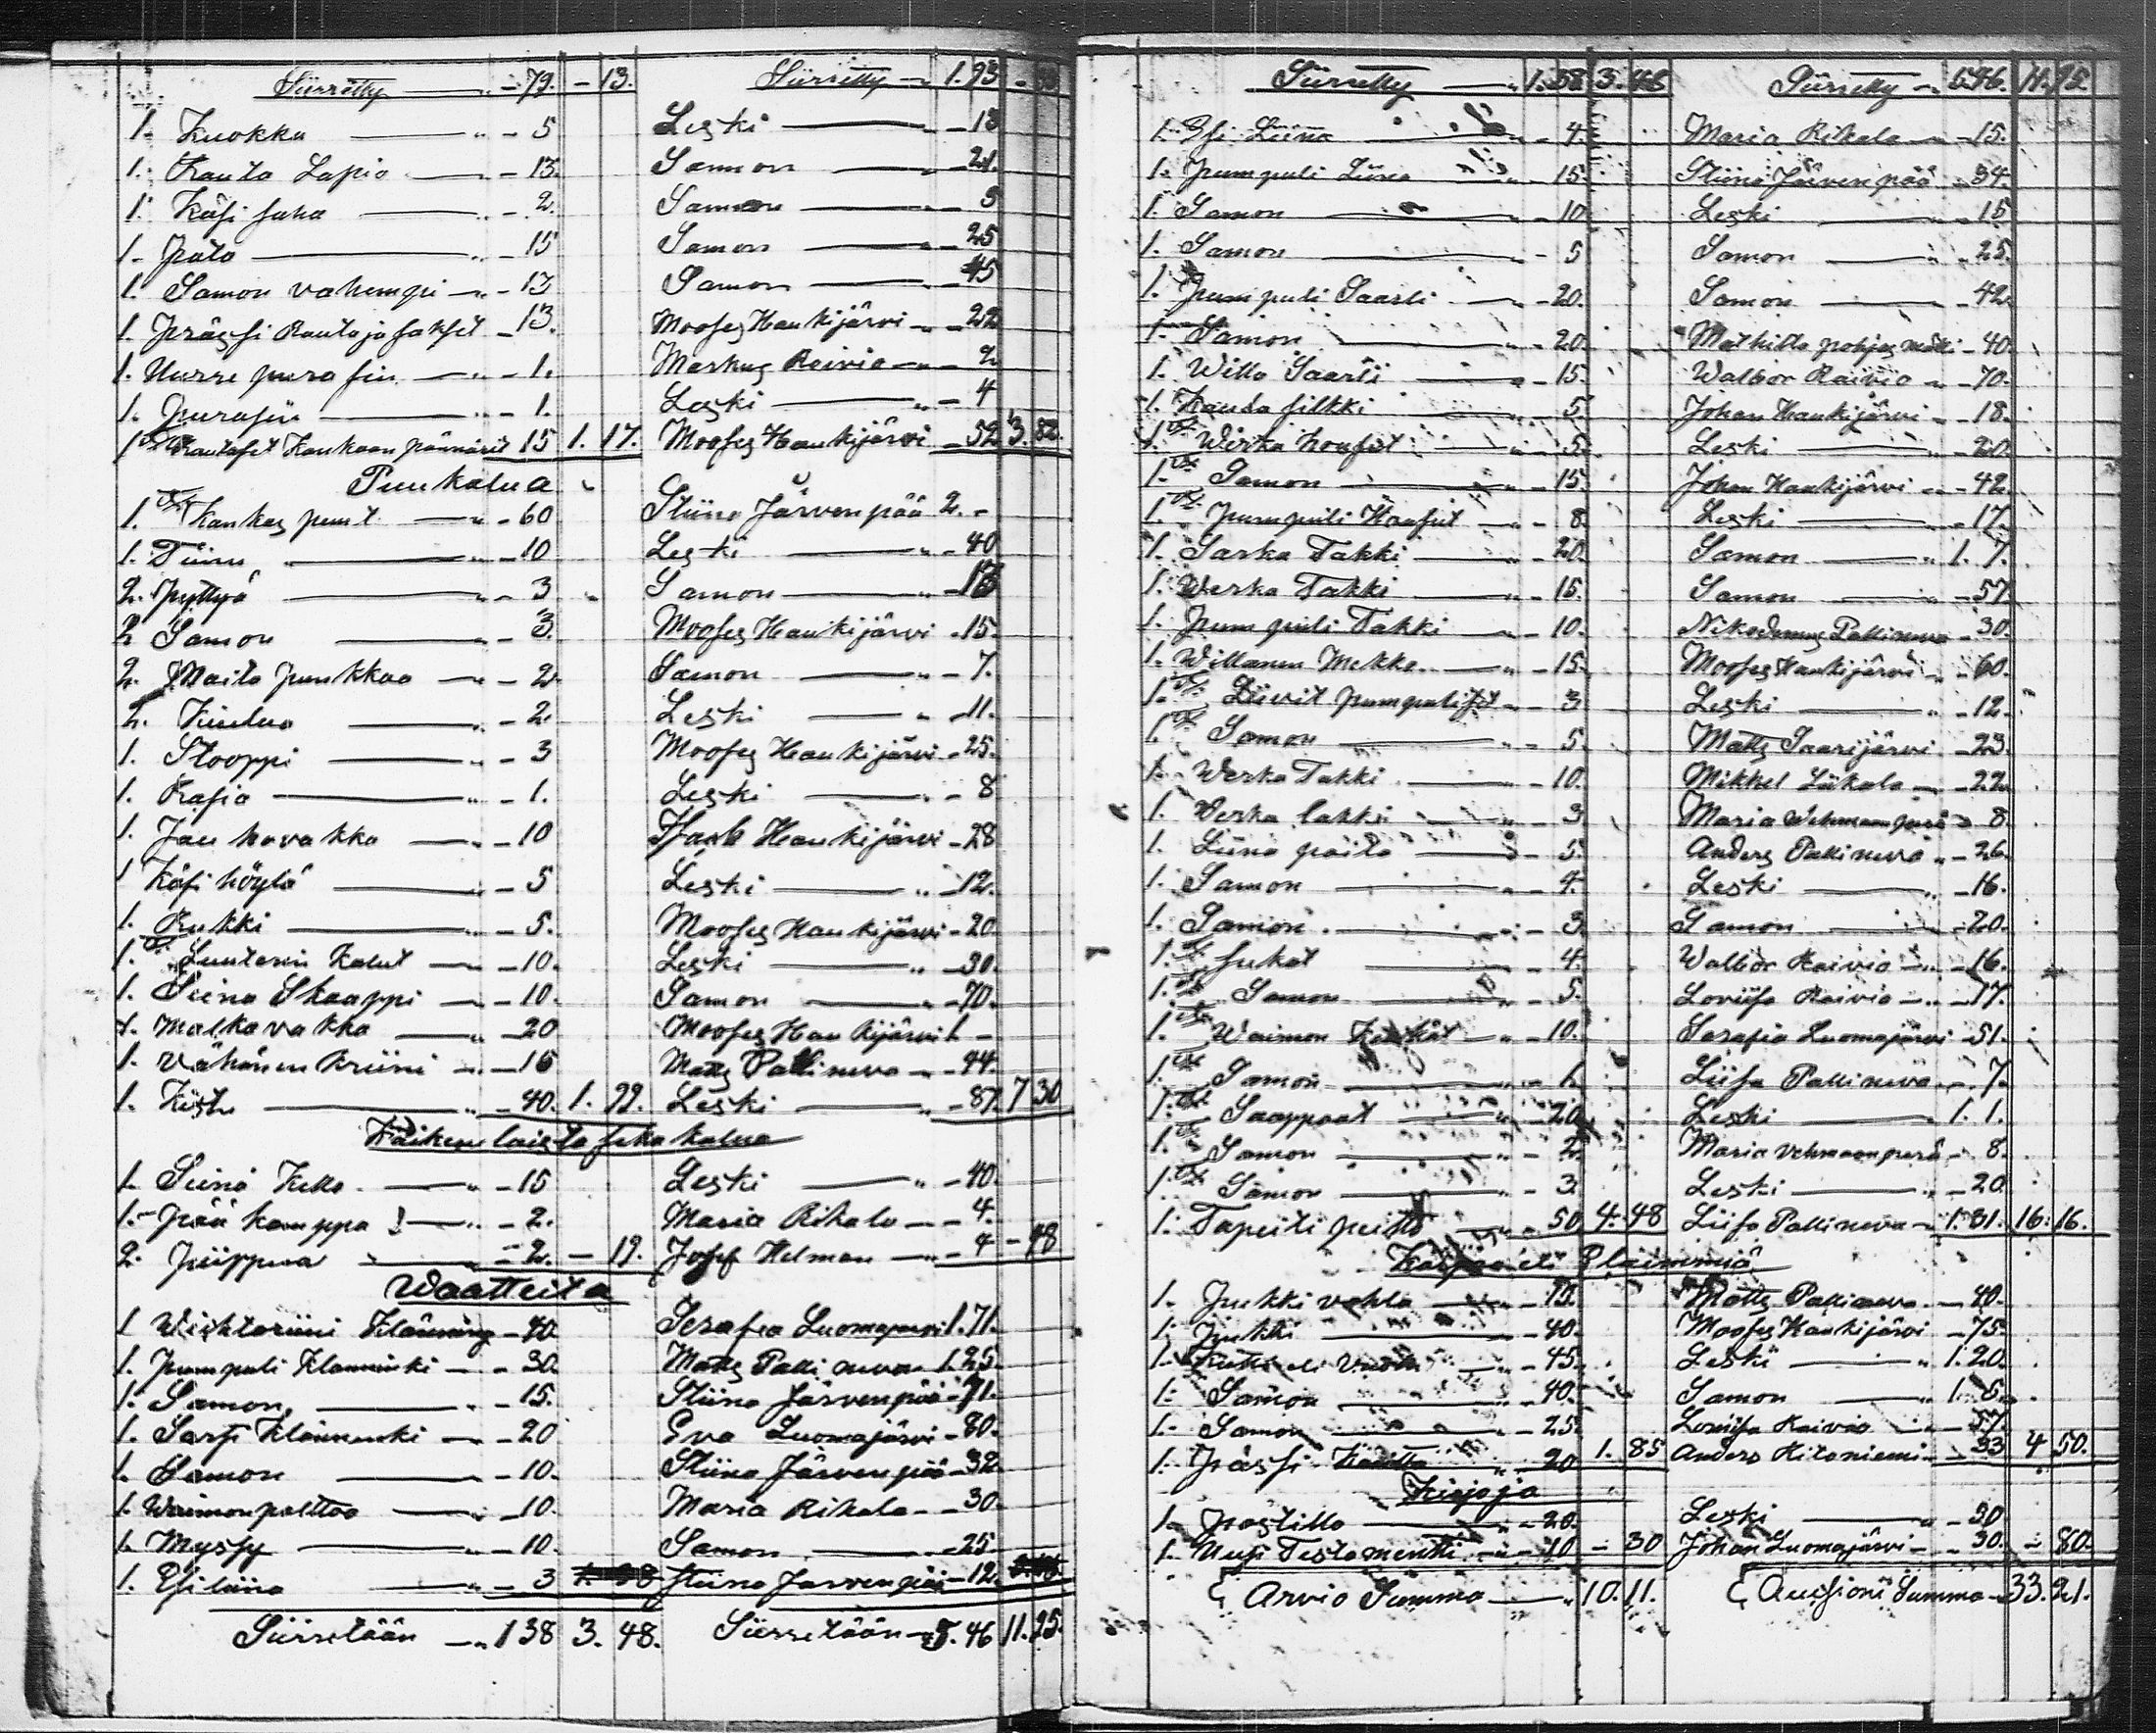 Siirretty — " - 79. - 13. Siirretty — 1. 93 -
1. Kuokka — " - 5 Leski — " - 13
1. Rauta Lapio — " - 13. Samon — " - 21.
1. Käsi saha — " - 2. Samon — " - 5
1. Pata — " - 15 Samon — " - 25
1. Samon vähempi — " - 13 Samon — " - 45
1. Prässi Rauta ja sakset - 13. Moses Haukijärvi — " - 22
1. Nurre purasin — " - 1. Markus Raivio — " - 2
1. Purasin — " - 1. Leski — " - 4
1 Rautaset Kankaan päänärit 15 1. 17. Moses Haukijärvi - 52 3. 82.
Puukalua
1. Kankas puut — " - 60 Stiina Järvenpää 2. -
1. Tiinu — " - 10 Leski — " - 40
2. Pyttyä — " - 3 Samon — " -
2 Samon — " - 3. Moses Haukijärvi - 15.
2. Maito Punkkaa — " - 2 Samon — " - 7.
2. Kiulua — " - 2. Leski — " - 11.
1. Stooppi — " - 3 Moses Haukijärvi - 25.
1. Rasia — " - 1. Leski — " - 8
1. Jauhovakka — " - 10 Isack Haukijärvi - 28
1 Käsi höylä — " - 5 Leski — " - 12.
1. Rukki — " - 5. Moses Haukijärvi - 20.
1. Suutarin Kalut — " - 10. Leski — " - 30.
1. Seinä Skaappi — " - 10. Samon — " - 70.
1. Malkavakka — " - 20 Moses Haukijärvi 1. -
1. Vähänen Kriini — " - 16 Matts Pallineva — " - 44.
1. Kistu — " - 40. 1. 99. Leski — " - 87. 7 30
Kaikenlaista sekakalua
1. Seinä Kello — " - 15 Leski — " - 40.
1. Pää kamppa — " - 2. Maria Rikala — " - 4.
2. Piippua — " - 2. - 19. Josef Helman — " - 4 - 48
Waatteita
1 Wichtoriini Klänning - 40. Serafia Luomajärvi 1. 71.
1. Pumpuli Klanninki — " - 30. Matts Pallineva - 1. 25.
1. Samon — " - 15. Stiina Järvenpää - 71.
1. Sarssi Klänninki — " - 20 Eva Luomajärvi - 80.
1. Samon — " - 10. Stiina Järvenpää - 32.
1. Waimon palttoo — " - 10. Maria Rikala — " - 30.
1. Myssy — " - 10. Samon — " - 25.
1. Esiliina — " - 3 Stiina Järvenpää - 12.
Siirretään — " 1 38 3. 48. Siirretään — 5. 46 11. 95.
Siirretty — " 1. 38 3. 48 Siirretty — " 5. 46. 11. 95.
1. Esi Liina — " - 4. Maria Rikala — " - 15.
1. Pumpuli Liina — " - 15. Stiina Järvenpää - 34.
1. Samon — " - 10 Leski — " - 15
1. Samon — " - 5 Samon — " - 25.
1. Pumpuli Saarli — " - 20. Samon — " - 42
1. Samon — " - 20. Mathilta pohjasmäki - 40.
1. Willa Saarli — " - 15. Walbor Raivio — " - 70.
1. Kaula silkki — " - 5. Johan Haukijärvi - 18.
1. Werka housut — " - 5. Leski — " - 20.
1. Samon — " - 15. Johan Haukijärvi - 42.
1. Pumpuli Housut — " - 8. Leski — " - 17.
1. Sarka Takki — " - 20. Samon — " 1. 7.
1. Werka Takki — " - 15. Samon — " - 57.
1. Pumpuli Takki — " - 10. Nikodemus Pallineva - 30.
1. Willanen Mekko — " - 15. Moses Haukijärvi - 60.
1. Liivit pumpuliset — " - 3 Leski — " - 12.
1. Samon — " - 5. Matts Saarijärvi - 23.
1. Werka Takki — " - 10. Mikkel Liikala — " - 22.
1. Werka lakki — " - 3. Maria Vehmaanperä - 8.
1. Liina paita — " - 5. Anders Pallineva - 26.
1. Samon — " - 4. Leski — " - 16.
1. Samon — " - 3. Samon — " - 20.
1. Sukat — " - 4. Walbor Raivio — " - 16.
1. Samon — " - 5. Loviisa Raivio — " - 17.
1. Waimon Kenkät — " - 10. Serafia Luomajärvi - 51.
1. Samon — " - 1. Liisa Pallineva — " - 7.
1. Saappaat — " - 20. Leski — " 1. 1.
1. Samon — " - 2. Maria Vehmaanperä - 8.
1. Samon — " - 3. Leski — " - 20
1. Tapeiti peitto — " - 50 4. 48 Liisa Pallineva — " 1. 31. 16. 16.
Eläimmiä
1. Pukki vohla — " - 15. Matts Pallineva — " - 40.
1. Pukki — " - 40. Moses Haukijärvi - 75.
1. Kuttu eli Vuohi — " - 45. Leski — " 1. 20.
1. Samon — " - 40. Samon — " 1. 5.
1. Samon — " - 25. Loviisa Raivio — " - 57.
1. Prässi — " - 20 1. 85 Anders Hitaniemi — " - 33 4 50.
Kirjoja
1. Postilla — " - 20. Leski — " - 30
1. Uusi Testamentti — " - 10 - 30 Johan Luomajärvi — " - 30. - 80.
Arvio Summa — " 10. 11. Auksioni Summa — 33. 21.